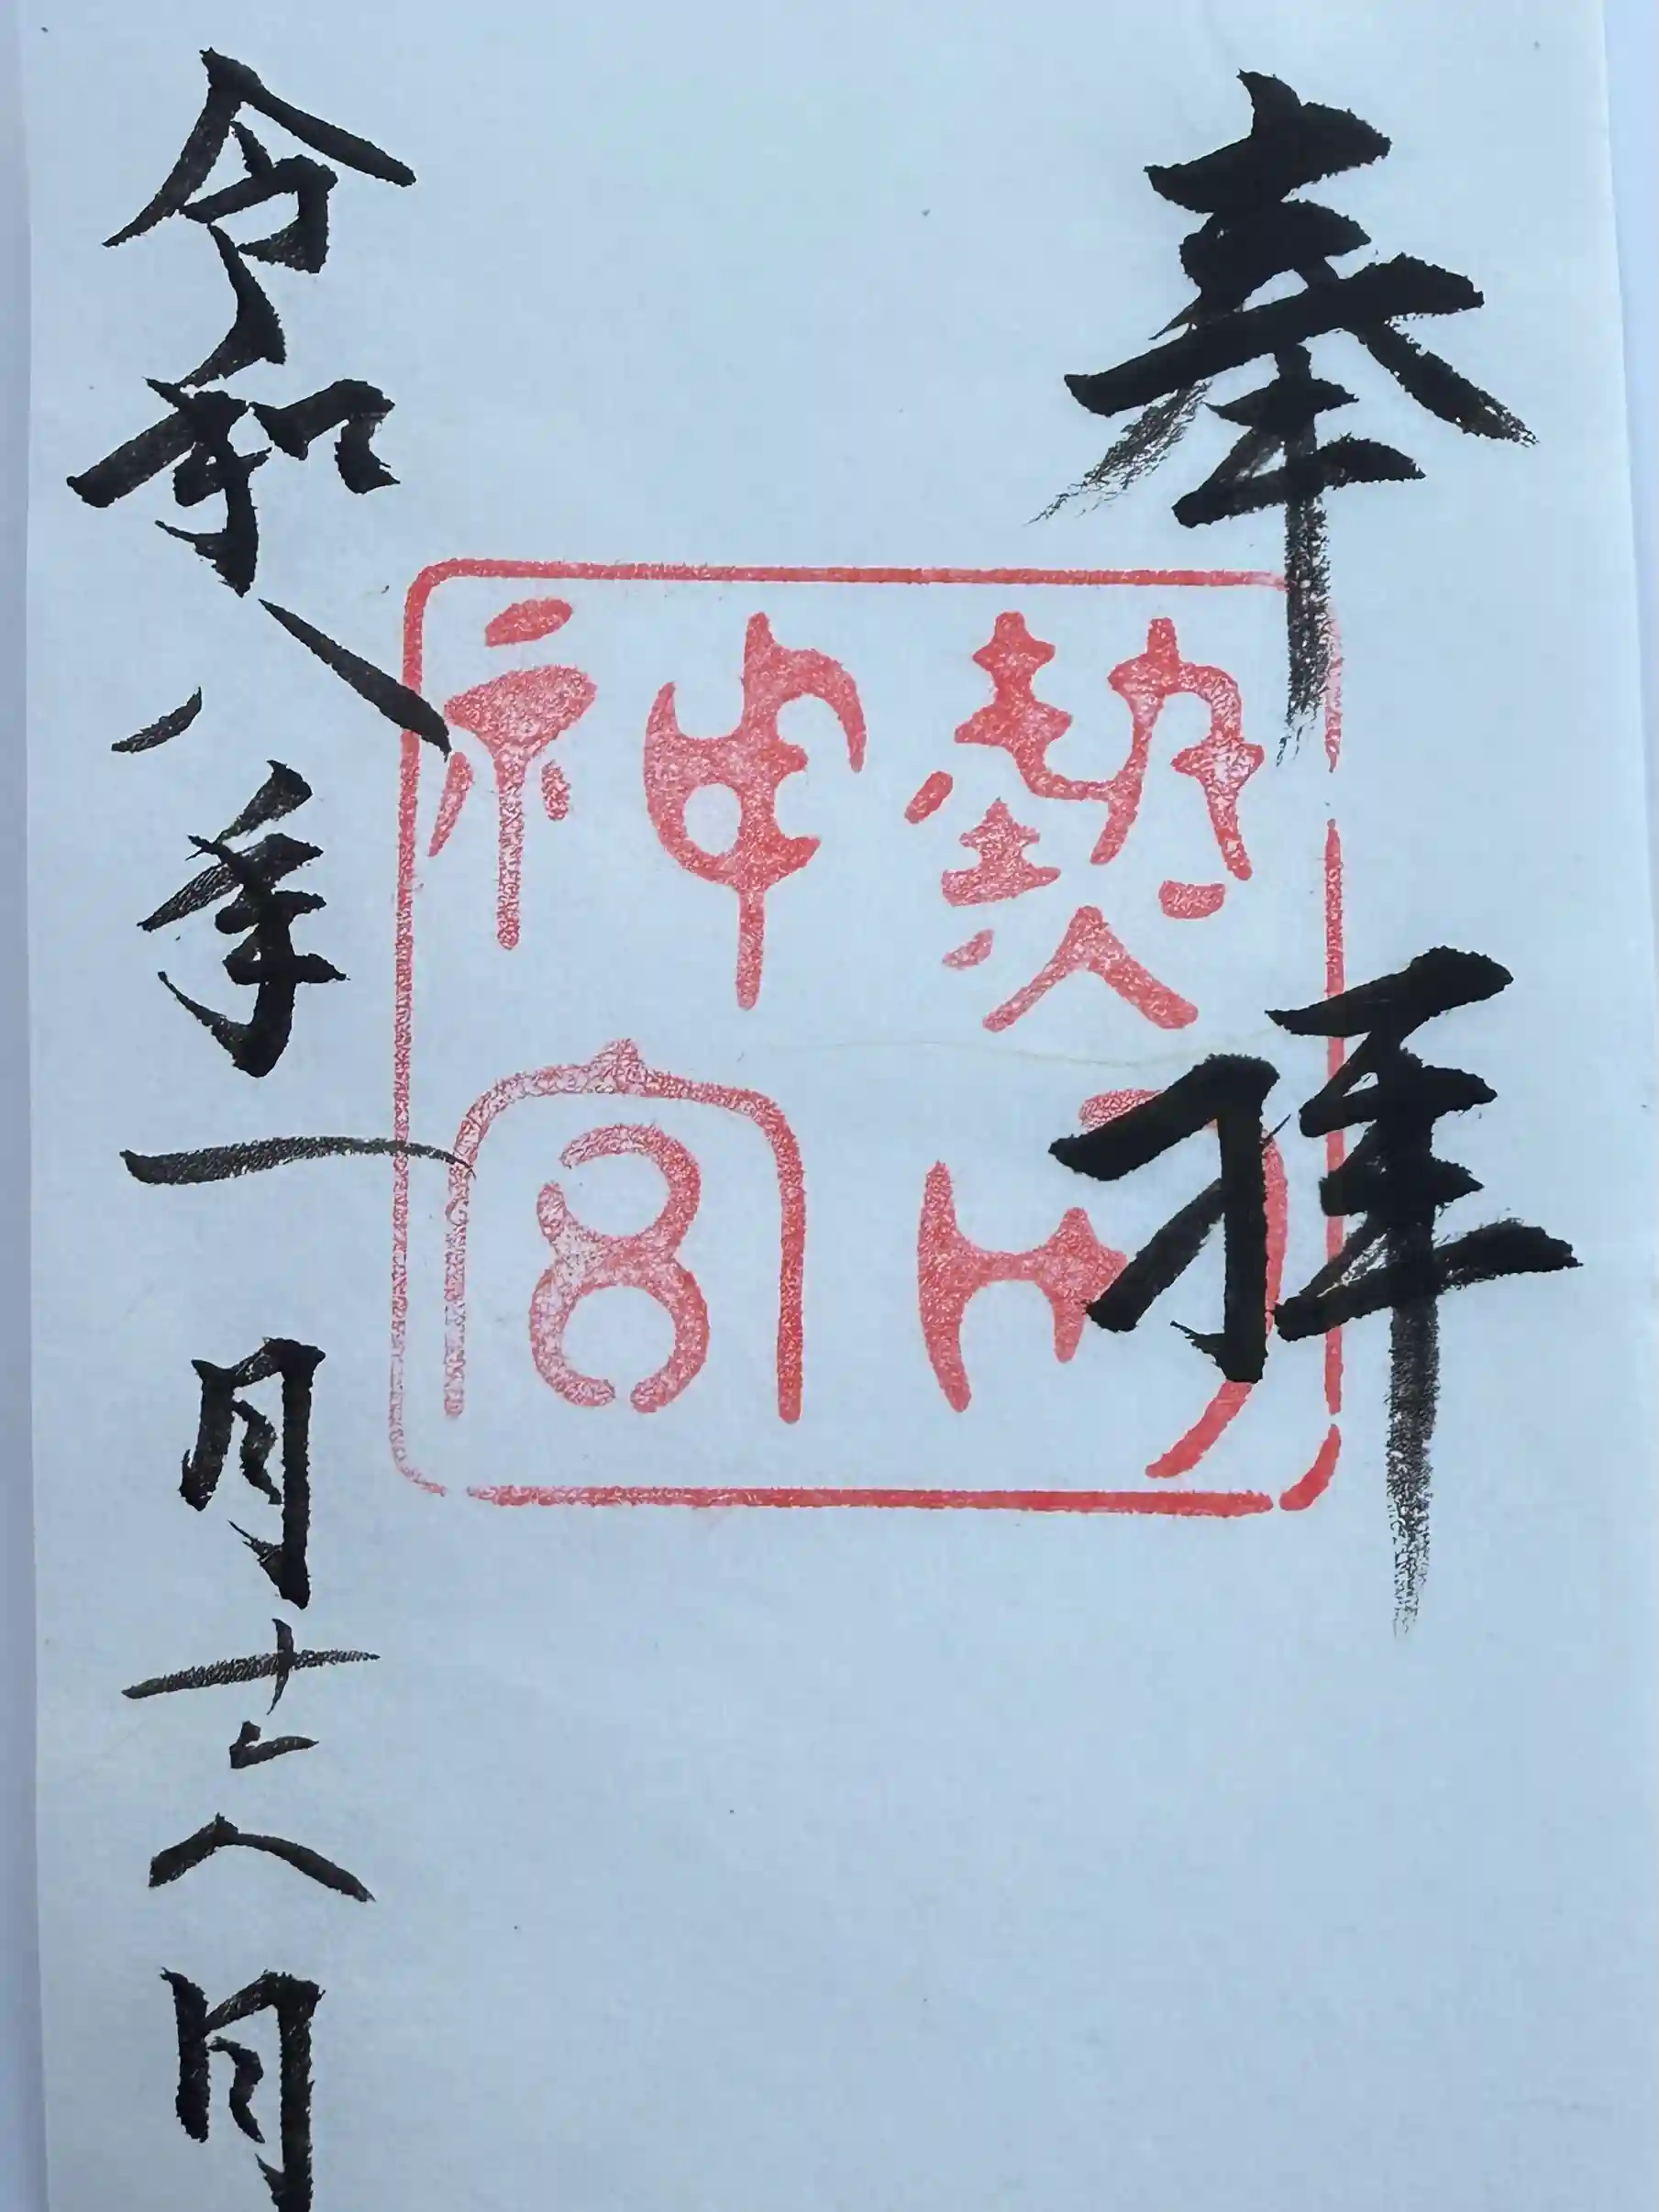 奉拝
熱田
神宮
令和八年一月十六日